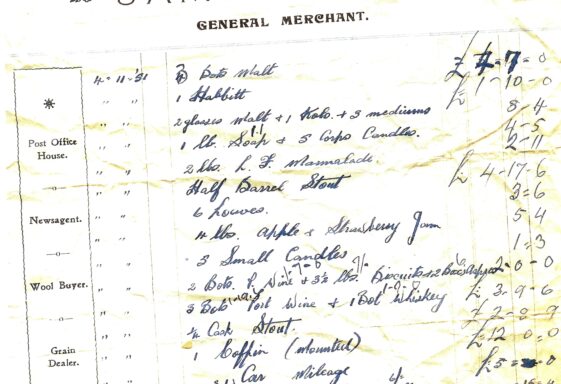 GENERAL MERCHANT.
4-11-'31 Bots Malt £ 4-7-0
" " 1 Habbitt £ 1-10-0
" " 2 glasses Malt & 1 + 3 mediums 8 4
" " 1 lb. Soap & 5 Corpo Candles. 4-5
Post Office House.
" " 2 lbs. L. F. Marmalade. 2-11
" " Half Barrel Stout £ 4-17-6
" " 6 Loaves. 3=6
Newsagent.
" " 4 lbs. Apple & Strawberry Jam 5 4
3 Small Candles 1=3
2 Bots. P. Wine & 3½ lbs. Biscuits & 2 2-0-0
Wool Buyer.
3 Bots Port Wine & 1 Bot Whiskey £ 3-9-6
¼ Cask Stout. £ 2-8-9
1 Coffin (mounted) £12 0=0
Grain Dealer.
Car Mileage £5=-0